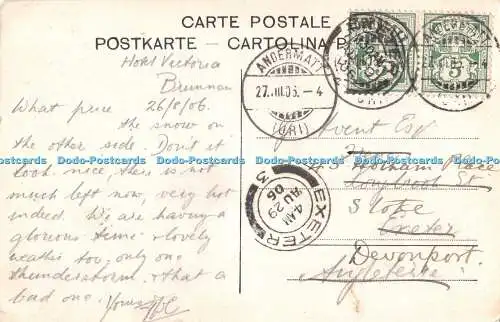 CARTE POSTALE
POSTKARTE - CARTOLINA P
Hotel Victoria
Brunnen
26/8/06.
What price
the snow on
the other side. Don't it
look nice, there is not
much left now, very hot
indeed. We are having a
glorious time & lovely
weather too, only one
thunderstorm & that a
bad one. Yours
ANDERMATT
27.VIII.06. - 4
(URI)
ANDERMATT
(URI)
5
EXETER
4 AM
AU 29
06
3
Vent Esq
Holham Place
St
Stoke
Exeter
Devonport.
Angleterre
Dodo-Postcards Dodo-Postcards Dodo-Postcards Dodo-Postcards Dodo-Postcards